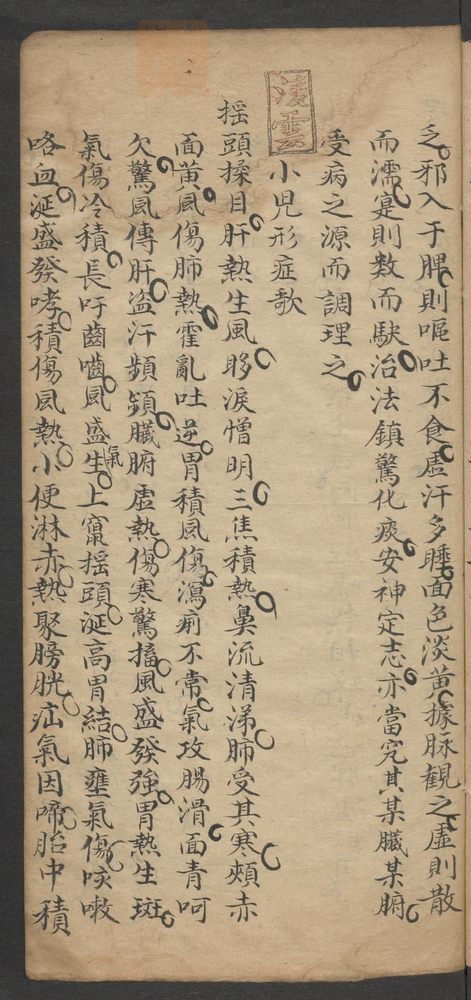 乏邪入于脾則嘔吐不食虛汗多睡面色淡黃據脉観之虛則散
而濡寔則数而駃治法鎮驚化痰安神定志亦當究其某臟某腑
受病之源而調理之
小児形症歌
揺頭揉目肝熱生風眵淚憎明三焦積熱鼻流清涕肺受其寒頰赤
面黄風傷肺熱霍亂吐逆胃積風傷瀉痢不常氣攻腸滑面青呵
欠驚風傳肝盗汗頻頻臟腑虛熱傷寒驚搐風盛發強胃熱生斑
氣傷冷積長吁齒嚙風盛生氣上竄揺頭涎高胃結肺壅氣傷咳嗽
咯血涎盛發哮積傷風熱小便淋赤熱聚膀胱疝氣因啼胎中積